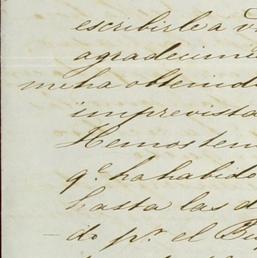 escribirle a V
agradecime
me ha obtenid
imprevista
Hemos ten
qe. ha habido
hasta las d
do pr. el Bu